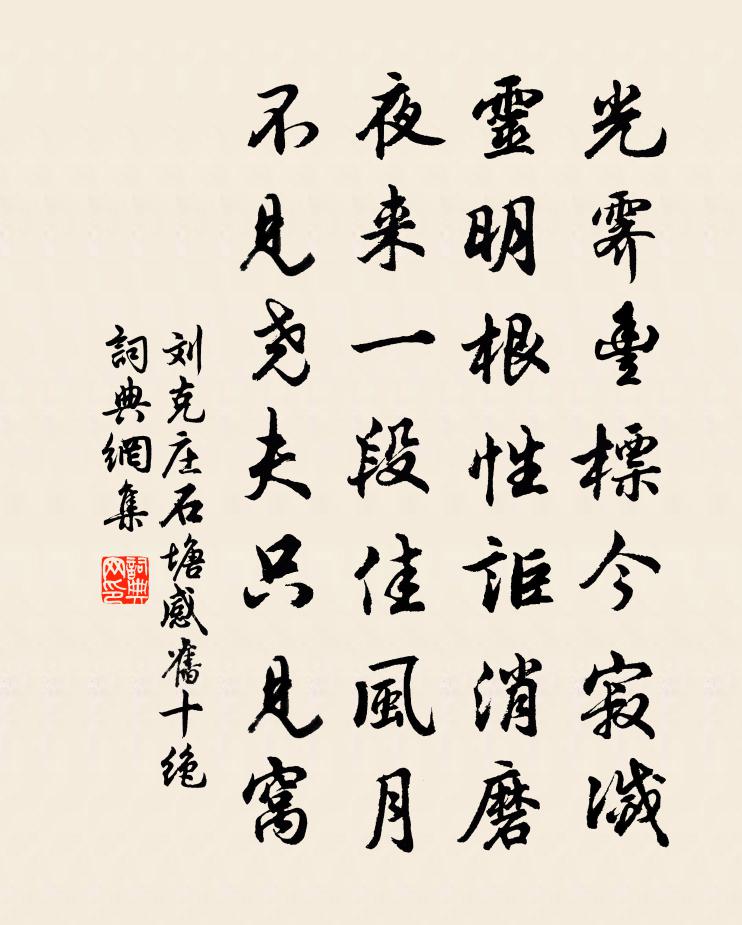 光霽豐標今寂滅
靈明根性詎消磨
夜来一段佳風月
不見尧夫只見窩
刘克庄石塘感舊十绝
詞典網集
詞典网印